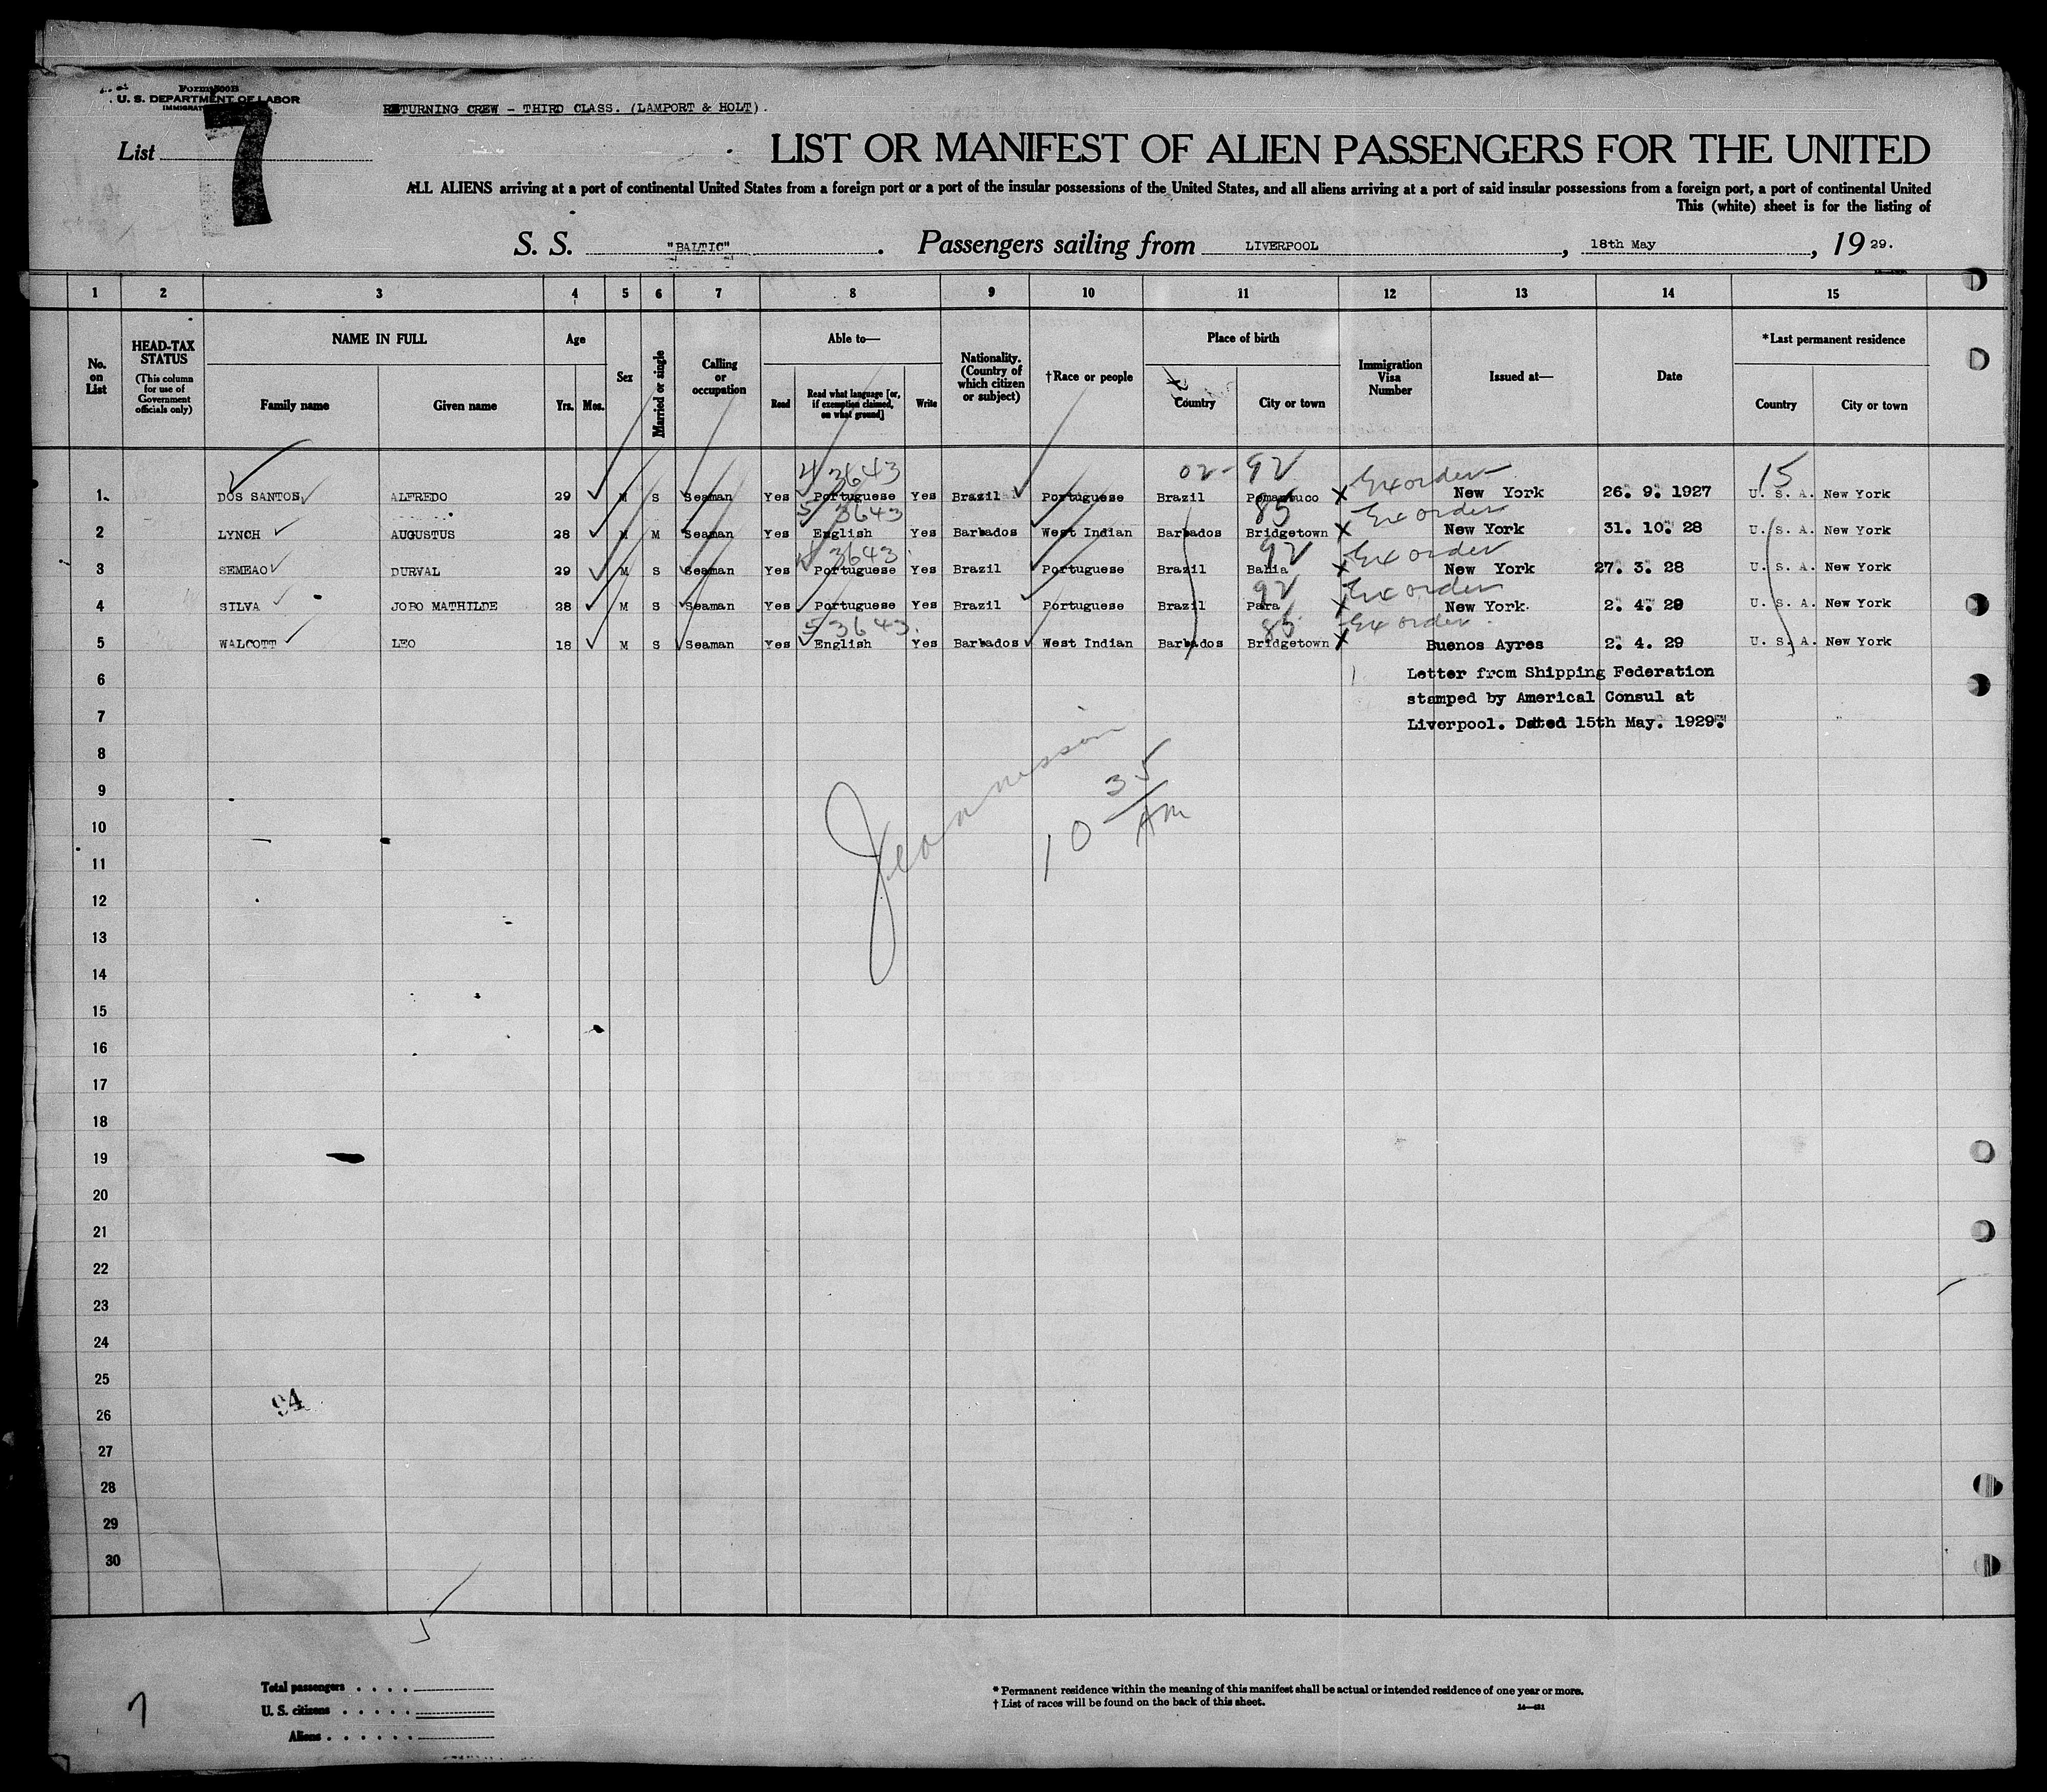 Form 500B
U. S. DEPARTMENT OF LABOR
RETURNING CREW - THIRD CLASS. (LAMPORT & HOLT).
List 7
LIST OR MANIFEST OF ALIEN PASSENGERS FOR THE UNITED
ALL ALIENS arriving at a port of continental United States from a foreign port or a port of the insular possessions of the United States, and all aliens arriving at a port of said insular possessions from a foreign port, a port of continental United
This (white) sheet is for the listing of
S. S. "BALTIC". Passengers sailing from LIVERPOOL, 18th May, 1929.
1 2 3 4 5 6 7 8 9 10 11 12 13 14 15
No. on List
HEAD-TAX STATUS
(This column for use of Government officials only)
NAME IN FULL
Family name Given name
Age
Yrs. Mos.
Sex
Married or single
Calling or occupation
Able to—
Read Read what language [or, if exemption claimed, on what ground] Write
Nationality. (Country of which citizen or subject)
†Race or people
Place of birth
Country City or town
Immigration Visa Number
Issued at—
Date
*Last permanent residence
Country City or town
3643 02- 92 Ex order 15
1. DOS SANTOS ALFREDO 29 M S Seaman Yes Portuguese Yes Brazil Portuguese Brazil Pemambuco X New York 26. 9. 1927 U. S. A. New York
5 3643 85 Ex order
2 LYNCH AUGUSTUS 28 M M Seaman Yes English Yes Barbados West Indian Barbados Bridgetown X New York 31. 10. 28 U. S. A. New York
3643 92 Ex order
3 SEMEAO DURVAL 29 M S Seaman Yes Portuguese Yes Brazil Portuguese Brazil Bahia X New York 27. 3. 28 U. S. A. New York
92 Ex order
4 SILVA JOBO MATHILDE 28 M S Seaman Yes Portuguese Yes Brazil Portuguese Brazil Para X New York. 2. 4. 29 U. S. A. New York
5 3643 85 Ex order
5 WALCOTT LEO 18 M S Seaman Yes English Yes Barbados West Indian Barbados Bridgetown X Buenos Ayres 2. 4. 29 U. S. A. New York
6 Letter from Shipping Federation
stamped by Americal Consul at
7 Liverpool. Dated 15th May. 1929.
8
9
10 35
10 AM
11
12
13
14
15
16
17
18
19
20
21
22
23
24
25
94
26
27
28
29
30
5
7
Total passengers . . . .
U. S. citizens . . . . .
Aliens . . . . . .
* Permanent residence within the meaning of this manifest shall be actual or intended residence of one year or more.
† List of races will be found on the back of this sheet.